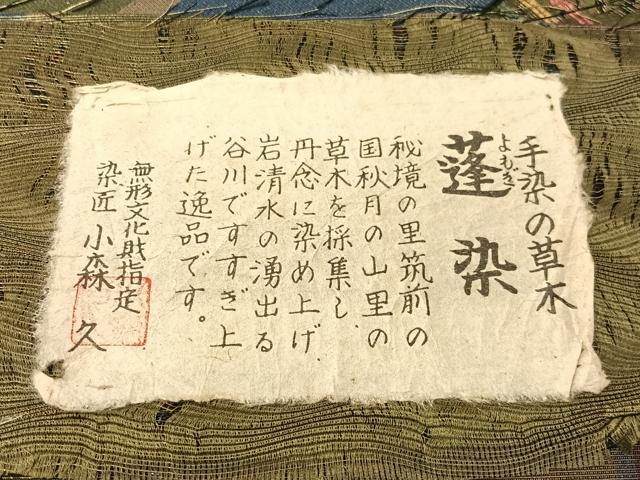 手染の草木
よもぎ
蓬染
秘境の里筑前の
国秋月の山里の
草木を採集し
丹念に染め上げ
岩清水の湧出る
谷川ですすぎ上
げた逸品です。
無形文化財指定
染匠 小森 久